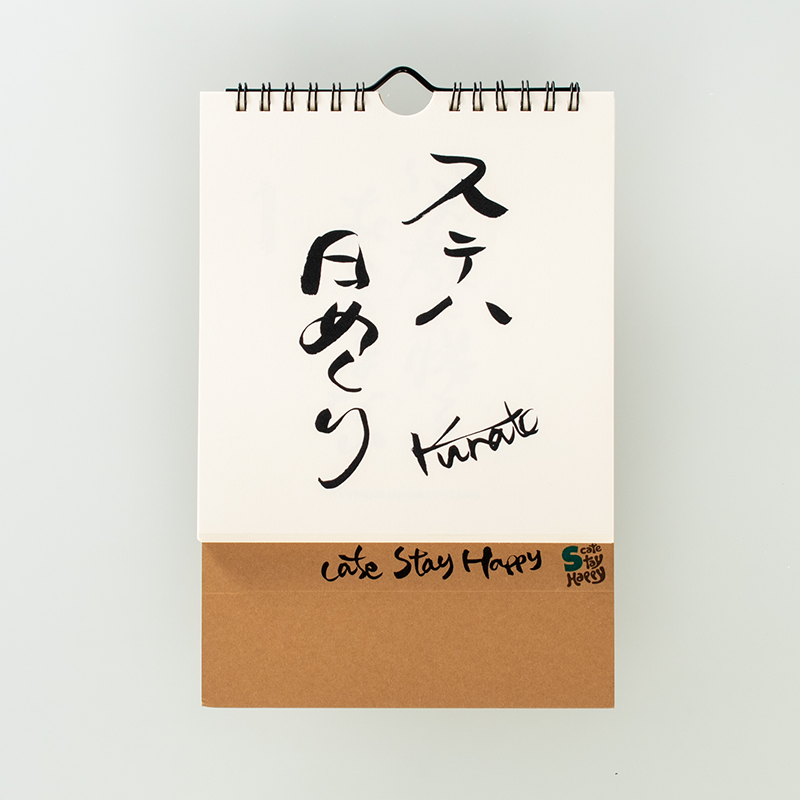 ステハ
日めくり
Kurato
cafe Stay Happy
S cafe
tay
Happy